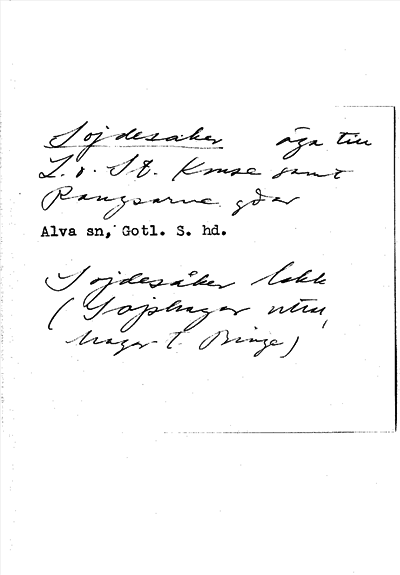 Sojdesåker äga till
L. o. St. Kruse samt
Rangsarve gdar
Alva sn, Gotl. S. hd.
Sojdesåker lokk
(Sojdhager utm,
hager t. Binge)